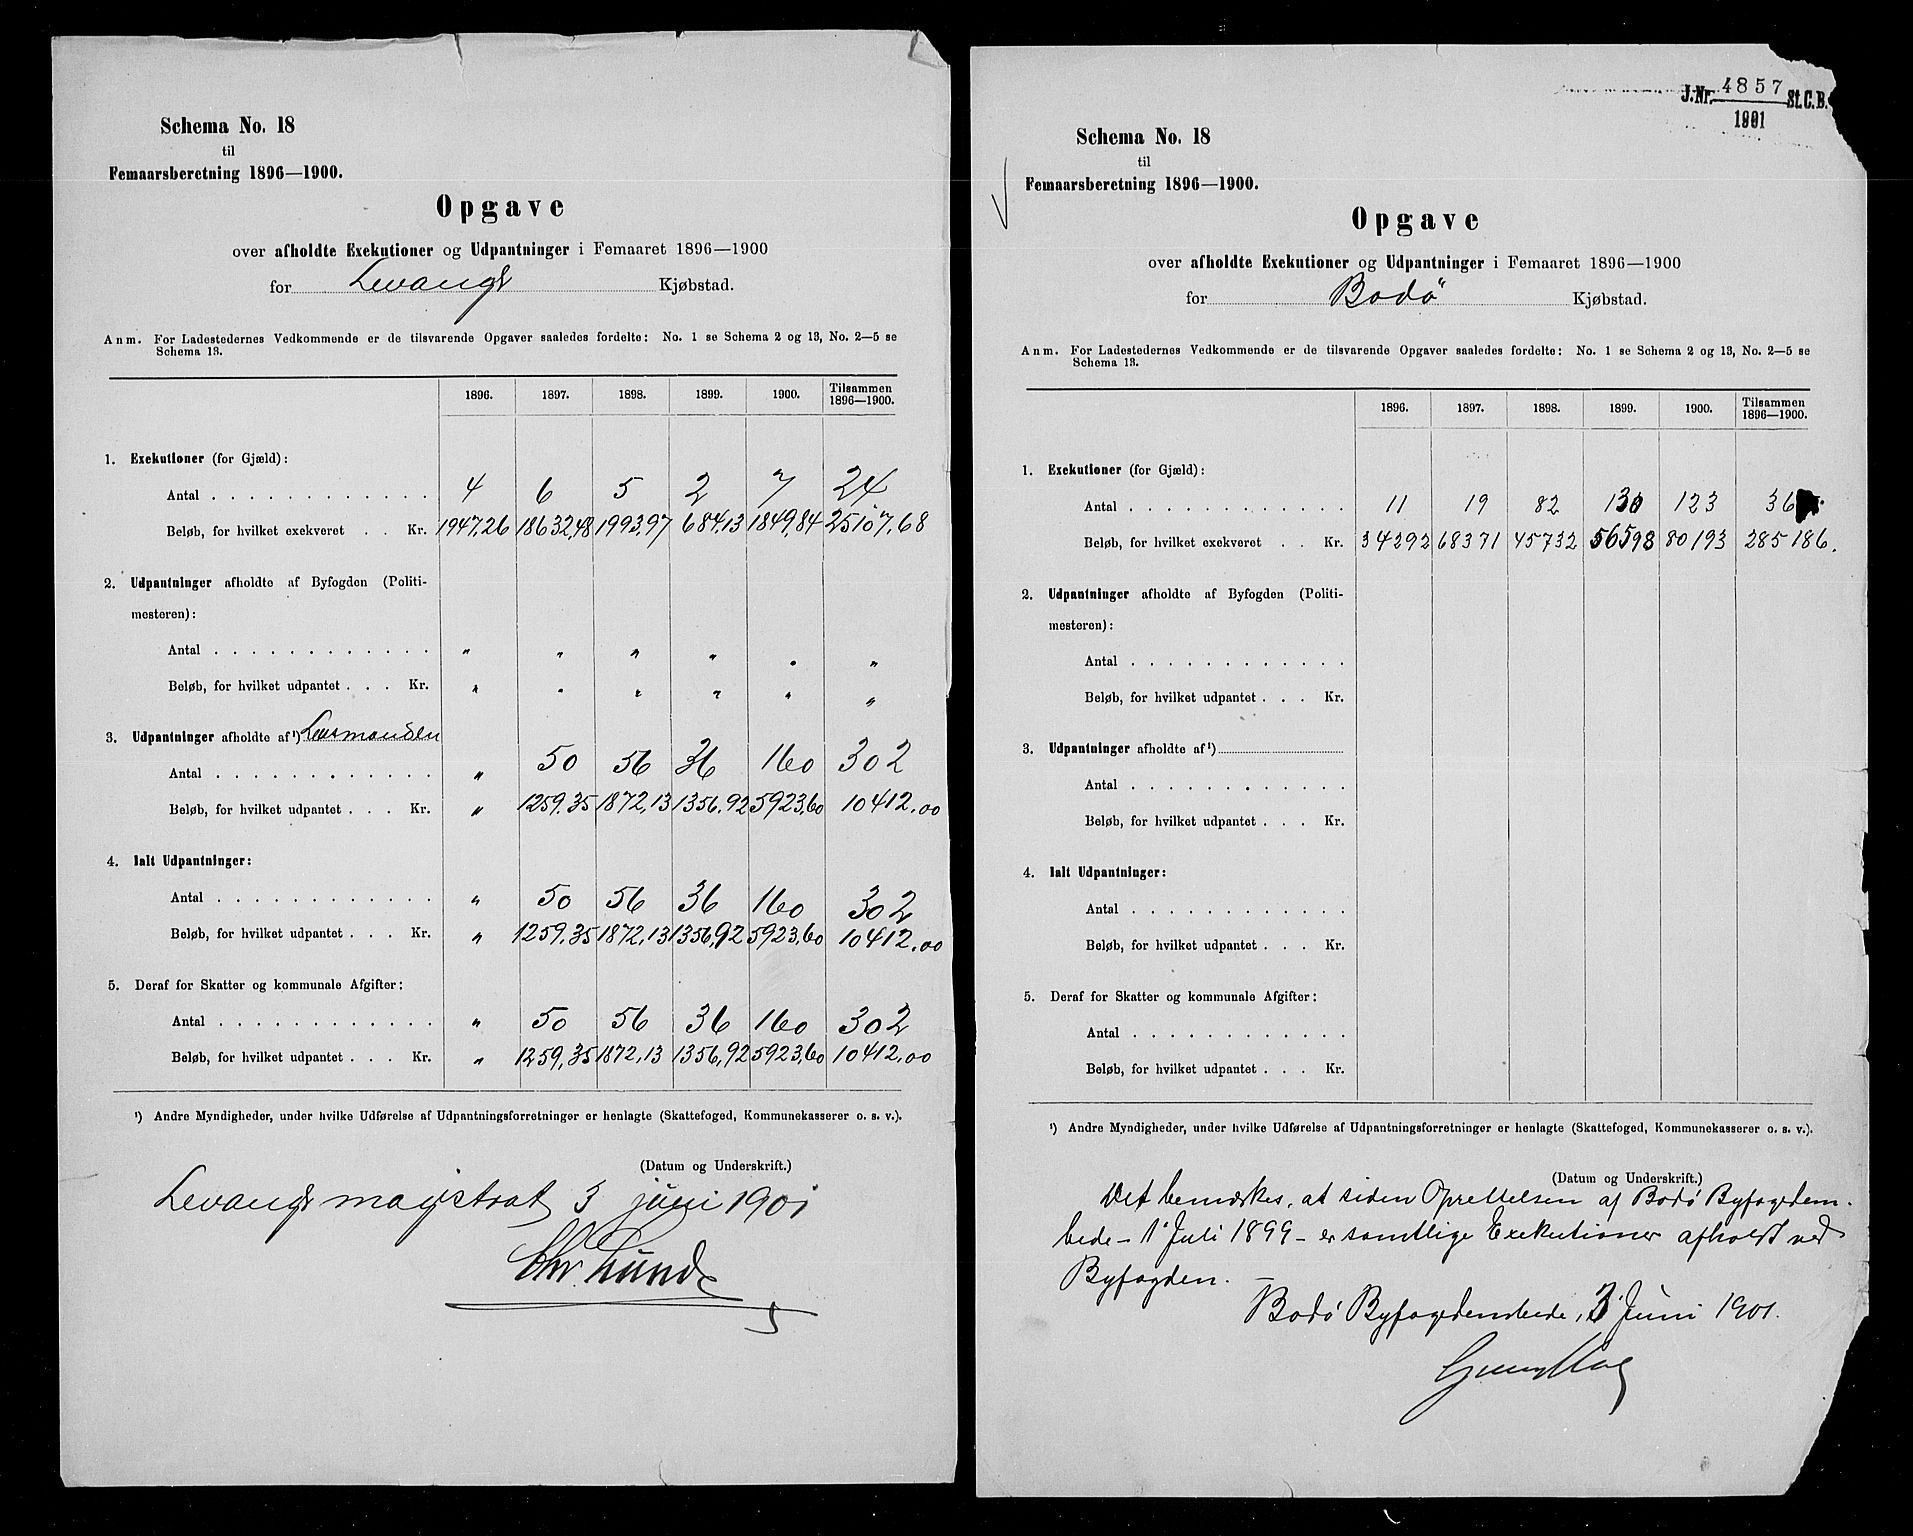 Schema No. 18
til
Femaarsberetning 1896—1900.
Opgave
over afholdte Exekutioner og Udpantninger i Femaaret 1896—1900
for Levanger Kjøbstad.
Anm. For Ladestedernes Vedkommende er de tilsvarende Opgaver saaledes fordelte: No. 1 se Schema 2 og 13, No. 2—5 se
Schema 13.
1896. 1897. 1898. 1899. 1900. Tilsammen 1896—1900.
1. Exekutioner (for Gjæld):
Antal . . . . . . . . . . . . 4 6 5 2 7 24
Beløb, for hvilket exekveret . . Kr. 1947,26 18632,48 1993,97 684,13 1849,84 25107,68
2. Udpantninger afholdte af Byfogden (Politi-
mesteren):
Antal . . . . . . . . . . . . " " " " " "
Beløb, for hvilket udpantet . . . Kr. " " " " " "
3. Udpantninger afholdte af¹) Lensmanden
Antal . . . . . . . . . . . . " 50 56 36 160 302
Beløb, for hvilket udpantet . . . Kr. " 1259,35 1872,13 1356,92 5923,60 10412,00
4. Ialt Udpantninger:
Antal . . . . . . . . . . . . " 50 56 36 160 302
Beløb, for hvilket udpantet . . . Kr. " 1259,35 1872,13 1356,92 5923,60 10412,00
5. Deraf for Skatter og kommunale Afgifter:
Antal . . . . . . . . . . . . " 50 56 36 160 302
Beløb, for hvilket udpantet . . . Kr. " 1259,35 1872,13 1356,92 5923,60 10412,00
¹) Andre Myndigheder, under hvilke Udførelse af Udpantningsforretninger er henlagte (Skattefoged, Kommunekasserer o. s. v.).
(Datum og Underskrift.)
Levanger magistrat 3 juni 1901
Chr. Lund
J.Nr. 4857 St.C.B.
1901
Schema No. 18
til
Femaarsberetning 1896—1900.
Opgave
over afholdte Exekutioner og Udpantninger i Femaaret 1896—1900
for Bodø Kjøbstad.
Anm. For Ladestedernes Vedkommende er de tilsvarende Opgaver saaledes fordelte: No. 1 se Schema 2 og 13, No. 2—5 se
Schema 13.
1896. 1897. 1898. 1899. 1900. Tilsammen 1896—1900.
1. Exekutioner (for Gjæld):
Antal . . . . . . . . . . . . 11 19 82 130 123
Beløb, for hvilket exekveret . . Kr. 34292 68371 45732 56598 80193 285186.
2. Udpantninger afholdte af Byfogden (Politi-
mesteren):
Antal . . . . . . . . . . . .
Beløb, for hvilket udpantet . . . Kr.
3. Udpantninger afholdte af¹)
Antal . . . . . . . . . . . .
Beløb, for hvilket udpantet . . . Kr.
4. Ialt Udpantninger:
Antal . . . . . . . . . . . .
Beløb, for hvilket udpantet . . . Kr.
5. Deraf for Skatter og kommunale Afgifter:
Antal . . . . . . . . . . . .
Beløb, for hvilket udpantet . . . Kr.
¹) Andre Myndigheder, under hvilke Udførelse af Udpantningsforretninger er henlagte (Skattefoged, Kommunekasserer o. s. v.).
(Datum og Underskrift.)
Det bemærkes, at siden Oprettelsen af Bodø Byfogdem-
bede – 1 Juli 1899 – er samtlige Exekutioner afholdt ved
Byfogden.
Bodø Byfogdembede, 3 Juni 1901.